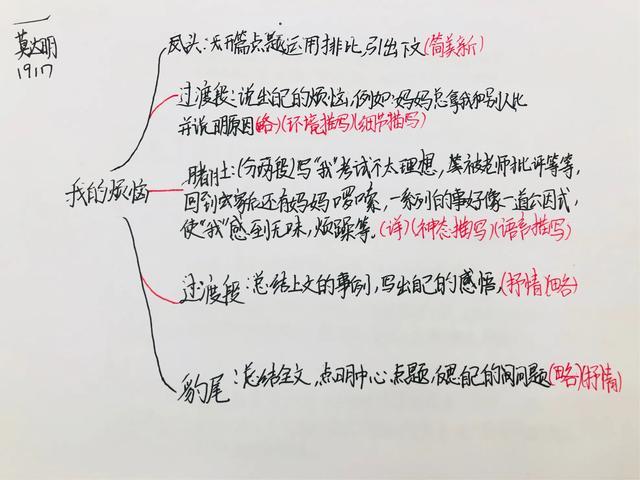 莫达明
1917
我的烦恼
凤头:开篇点题运用排比,引出下文(简美新)
过渡段:说出自己的烦恼,例如:妈妈总拿我和别人比
并说明原因(略)(环境描写)(细节描写)
猪肚:(分两段)写"我"考试不太理想,总被老师批评等等,
回到家后还有妈妈啰嗦,一系列的事好像一道公因式,
使"我"感到无味,烦躁等,(详)(神态描写)(语言描写)
过渡段:总结上文的事例,写出自己的感悟,(抒情)(略)
豹尾:总结全文,点明中心点题,反思自己的问题(略)(抒情)